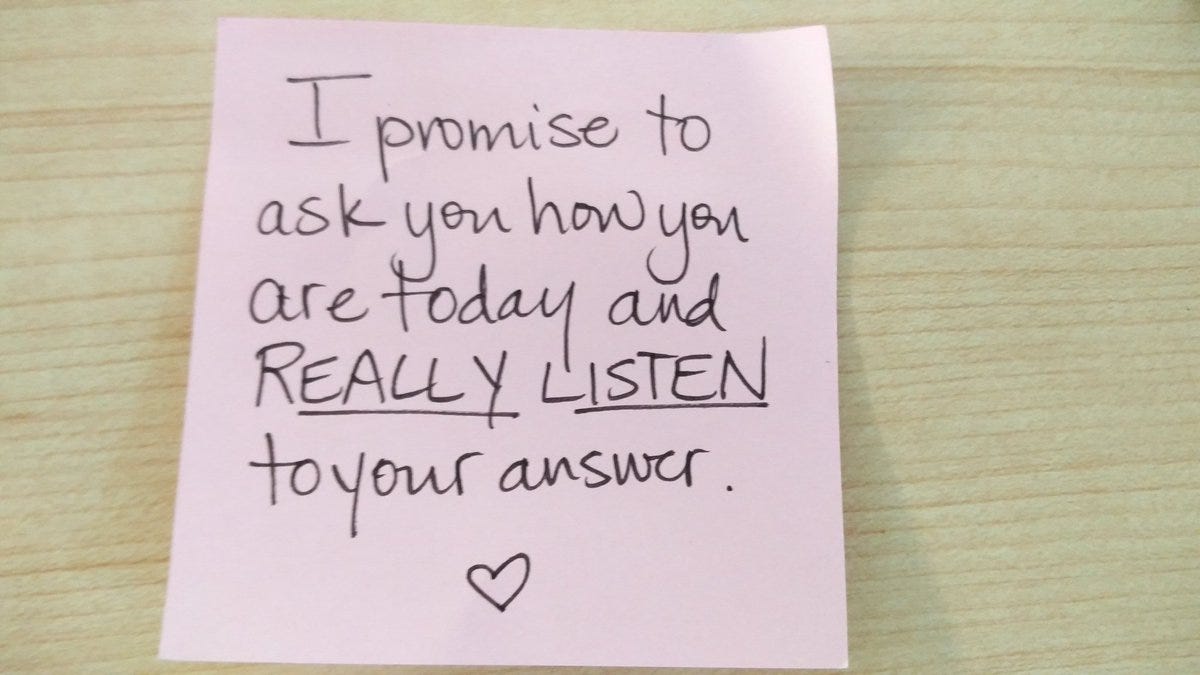 I promise to
ask you how you
are today and
REALLY LISTEN
to your answer.